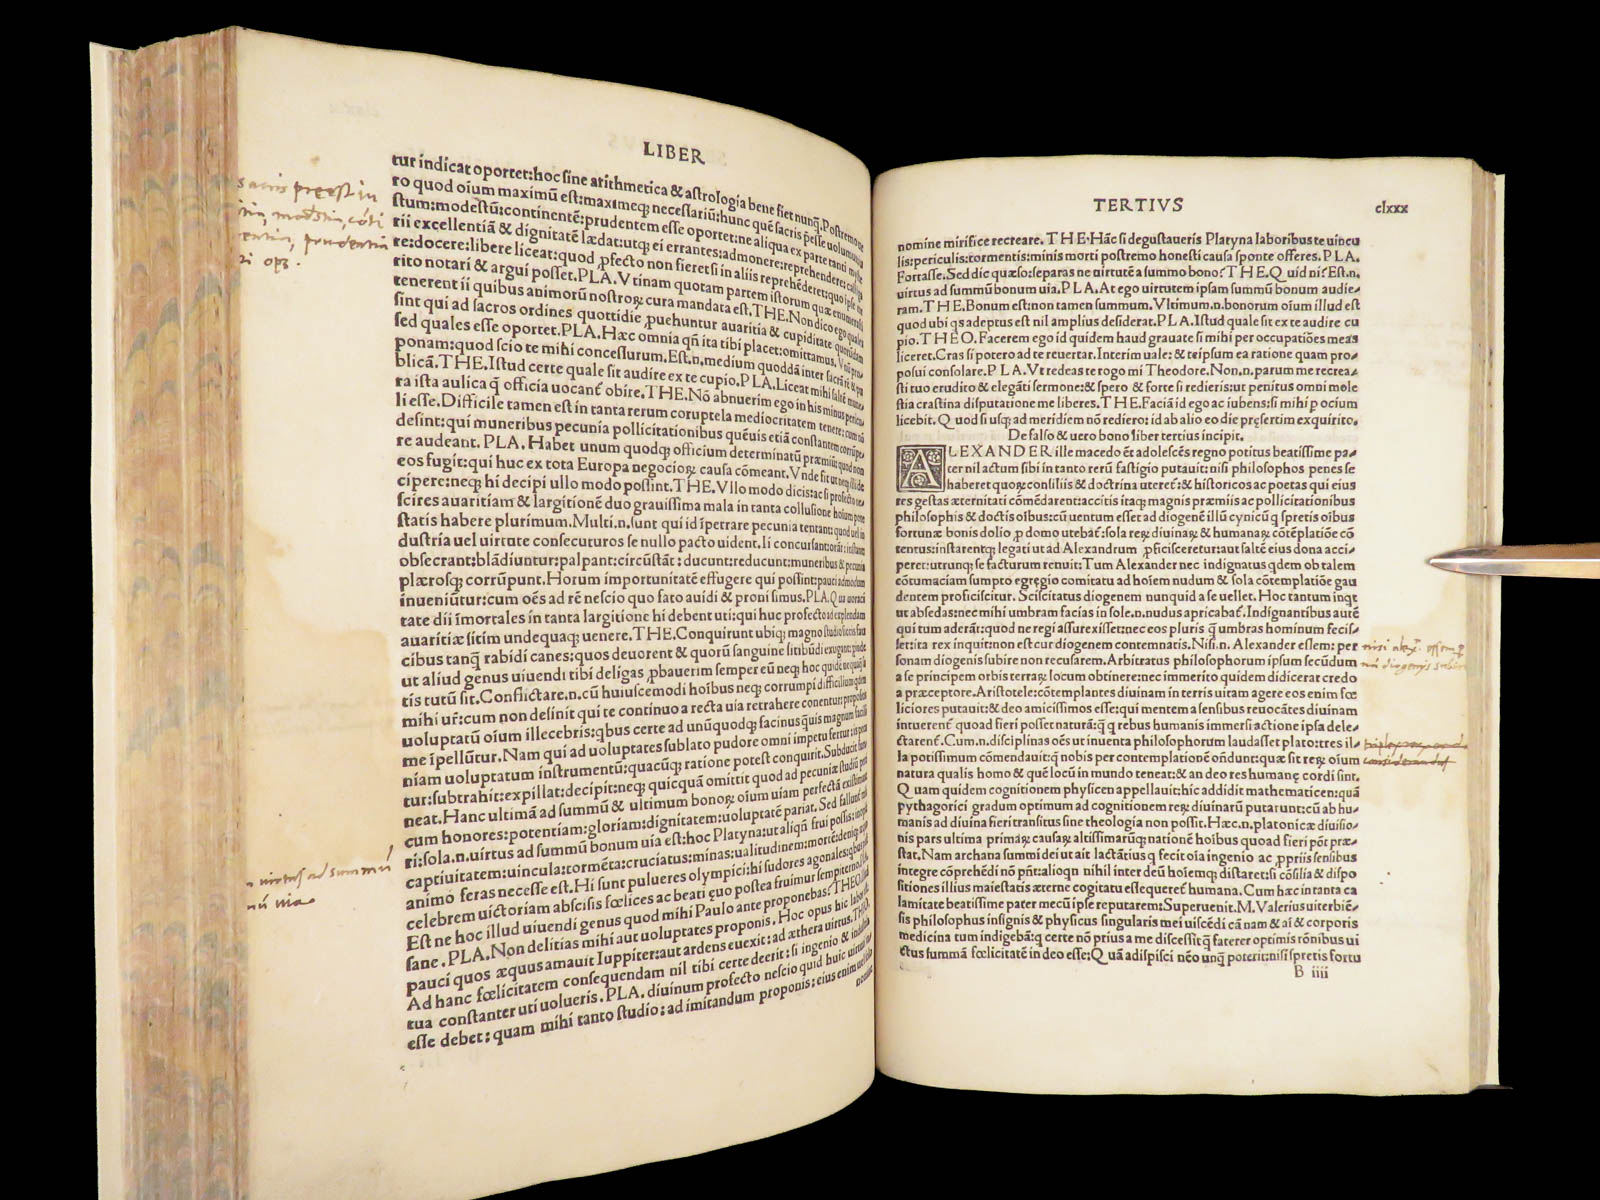 LIBER
tur indicat oportet:hoc sine arithmetica & astrologia bene fiet nunq̃.Postremo
ro quod oĩum maximũ est:maximeqȝ necessariũ:hunc quẽ sacris p̄esse uolumus
stum:modestũ:continentẽ:prudentem esse oportet:ne aliqua ex parte tanti
rii excellentiã & dignitatẽ lædat:utqȝ ei errantes:admonere:reprehendere:
re:docere:libere liceat:quod ꝓfecto non fieret si in aliis reprehẽderet:quo ipse
rito notari & argui posset.PLA.Vtinam quotam partem istorum quæ enumerasti
tenerent ii quibus animorũ nostroꝝ cura mandata est.THE.Non dico ego quales
sint qui ad sacros ordines quottidie ꝓuehuntur auaritia & cupiditate quorũdam
sed quales esse oportet.PLA.Hæc omnia qñ ita tibi placet:omittamus.
ponam:quod scio te mihi concessurum.Est.n.medium quoddã inter
blicã.THE.Istud certe quale sit audire ex te cupio.PLA.Liceat mihi saltẽ
ra ista aulica q̃ officia uocant̃ obire.THE.Nõ abnuerim ego in his minus
li esse.Difficile tamen est in tanta rerum coruptela mediocritatem tenere:cum nõ
desint:qui muneribus pecunia pollicitationibus quẽuis etiã constantem corrũpe-
re audeant.PLA.Habet unum quodqȝ officium determinatũ præmiũ:quod non
eos fugit:qui huc ex tota Europa negocioꝝ causa cõmeant.Vnde fit ut neqȝ illi de
cipere:neqȝ hi decipi ullo modo possint.THE.Vllo modo dicis:ac si profecto ne-
scires auaritiam & largitionẽ duo grauissima mala in tanta collusione hoĩum
statis habere plurimum.Multi.n.sunt qui id ĩpetrare pecunia tentant:quod uel in
dustria uel uirtute consecuturos se nullo pacto uident.Ii concursant:orãt:
obsecrant:blãdiuntur:palpant:circũstãt:ducunt:reducunt:muneribus & pecunia
plærosqȝ corrũpunt.Horum importunitatẽ effugere qui possint:pauci admodum
inueniũtur:cum oẽs ad rẽ nescio quo fato auidi & proni simus.PLA.Qua uoraci
tate dii ĩmortales in tanta largitione hi debent uti:qui huc profecto ad explendam
auaritiæ sitim undequaqȝ uenere.THE.Conquirunt ubiqȝ magno studio
cibus tanq̃ rabidi canes:quos deuorent & quorũ sanguine sitibũdi
ut aliud genus uiuendi tibi deligas ꝓbauerim semper eũ neqȝ hoc quidẽ
tis tutũ sit.Conflictare.n.cũ huiuscemodi hoĩbus neqȝ corrumpi difficilium
mihi ur̃:cum non desinit qui te continuo a recta uia retrahere conentur:
uoluptatũ oĩum illecebris:qbus certe ad unũquodqȝ facinus quis magnum facile
me ĩpellũtur.Nam qui ad uoluptates sublato pudore omni impetu fertur:
niam uoluptatum instrumentũ:quacũqȝ ratione potest conquirit.Subducit
tur:subtrahit:expillat:decipit:neqȝ quicquã omittit quod ad pecuniæ studiũ
neat.Hanc ultimã ad summũ & ultimum bonoꝝ oĩum uiam perfectã
cum honores:potentiam:gloriam:dignitatem:uoluptatẽ pariat.Sed
ri:sola.n.uirtus ad summũ bonum uia est:hoc Platyna:ut aliqñ frui possis:
captiuitatem:uincula:tormẽta:cruciatus:minas:ualitudinem:mortẽ:
animo feras necesse est.Hi sunt pulueres olympici:hi sudores agonales:
celebrem uictoriam abscisis fœlices ac beati ęuo postea fruimur sempiterno.
Est ne hoc illud uiuendi genus quod mihi Paulo ante proponebas?THEO.
sane.PLA.Non delitias mihi aut uoluptates proponis.Hoc opus hic labor
pauci quos æquus amauit Iuppiter:aut ardens euexit:ad æthera uirtus.
Ad hanc fœlicitatem consequendam nil tibi certe deerit:si ingenio &
tua constanter uti uolueris.PLA.diuinum profecto nescio quid huic
esse debet:quam mihi tanto studio:ad imitandum proponis:eius enim
sacris preest
modestũ, cõti
prudentiam
virtus ad summũ
nũ uia
TERTIVS
clxxx
nomine mirifice recreare.THE.Hãc si degustaueris Platyna laboribus te uincu
lis:periculis:tormentis:minis morti postremo honesti causa sponte offeres.PLA.
Fortasse.Sed dic quæso:separas ne uirtutẽ a summo bono?THE.Quid ni?Est.n.
uirtus ad summũ bonum uia.PLA.At ego uirtutem ipsam summũ bonum audie-
ram.THE.Bonum est:non tamen summum.Vltimum.n.bonorum oĩum illud est
quod ubi qs adeptus est nil amplius desiderat.PLA.Istud quale sit ex te audire cu
pio.THEO.Facerem ego id quidem haud grauate si mihi per occupatiões meas
liceret.Cras si potero ad te reuertar.Interim uale:& teipsum ea ratione quam pro-
posui consolare.PLA.Vt redeas te rogo mi Theodore.Non.n.parum me recrea-
sti tuo erudito & elegãti sermone:& spero & forte si redieris:ut penitus omni mole
stia crastina disputatione me liberes.THE.Faciã id ego ac iubens:si mihi ꝑ ocium
licebit.Quod si usqȝ ad meridiem nõ rediero:id ab alio eo die pręsertim exquirito.
De falso & uero bono liber tertius incipit.
ALEXANDER ille macedo ẽt adolescẽs regno potitus beatissime pa-
ter nil actum sibi in tanto rerũ fastigio putauit:nisi philosophos penes se
haberet quoꝝ consiliis & doctrina uteret̃:& historicos ac poetas qui eius
res gestas æternitati cõmẽdarent:accitis itaqȝ magnis præmiis ac pollicitationibus
philosophis & doctis oĩbus:cũ uentum esset ad diogenẽ illũ cynicũ q spretis oĩbus
fortunæ bonis dolio ꝓ domo utebat̃:sola reꝝ diuinaꝝ & humanaꝝ cõtẽplatiõe cõ
tentus:instarentqȝ legati ut ad Alexandrum ꝓficisceretur:aut saltẽ eius dona acci-
peret:utrunqȝ se facturum renuit:Tum Alexander nec indignatus qdem ob talem
cõtumaciam sumpto egregio comitatu ad hoĩem nudum & sola cõtemplatiõe gau
dentem proficiscitur.Sciscitatus diogenem nunquid a se uellet.Hoc tantum inqt
ut absedas:nec mihi umbram facias in sole.n.nudus apricabat̃.Indignantibus autẽ
qui tum aderãt:quod ne regi assurexisset:nec eos pluris q̃ umbras hominum fecis-
set:ita rex inquit:non est cur diogenem contemnatis.Nisi.n.Alexander essem:per
sonam diogenis subire non recusarem.Arbitratus philosophorum ipsum secũdum
a se principem orbis terraꝝ locum obtinere:nec immerito quidem didicerat credo
a præceptore.Aristotele:cõtemplantes diuinam in terris uitam agere eos enim fœ
liciores putauit:& deo amicissimos esse:qui mentem a sensibus reuocãtes diuinam
intuerent̃ quoad fieri posset naturã:q̃ q rebus humanis immersi actione ipsa dele-
ctarent̃.Cum.n.disciplinas oẽs ut inuenta philosophorum laudasset plato:tres il-
la potissimum cõmendauit:q̃ nobis per contemplationẽ oñdunt:quæ sit reꝝ oĩum
natura qualis homo & quẽ locũ in mundo teneat:& an deo res humanę cordi sint.
Quam quidem cognitionem physicen appellauit:hic addidit mathematicen:quã
pythagorici gradum optimum ad cognitionem reꝝ diuinarũ putarunt:cũ ab hu-
manis ad diuina fieri transitus sine theologia non possit.Hæc.n.platonicæ diuisio-
nis pars ultima primaꝝ causaꝝ altissimarũqȝ natiõnẽ hoĩbus quoad fieri põt præ-
stat.Nam archana summi dei ut ait lactãtius q fecit oĩa ingenio ac ꝓpriis sensibus
integre cõprehẽdi nõ pñt:alioqn nihil inter deũ hoĩemqȝ distaret:si cõsilia & dispo
sitiones illius maiestatis æterne cogitatu essequeret̃ humana.Cum hæc in tanta ca
lamitate beatissime pater mecũ ipse reputarem:Superuenit.M.Valerius uiterbiẽ-
sis philosophus insignis & physicus singularis mei uisẽdi cã nam & aĩ & corporis
medicina tum indigebã:q certe nõ prius a me discessit q̃ faterer optimis rõnibus ui
ctus summã fœlicitatẽ in deo esse:Quã adipisci nẽo unq̃ poterit:nisi spretis fortu
B iiii
nisi alex. essem p
diogenis subire